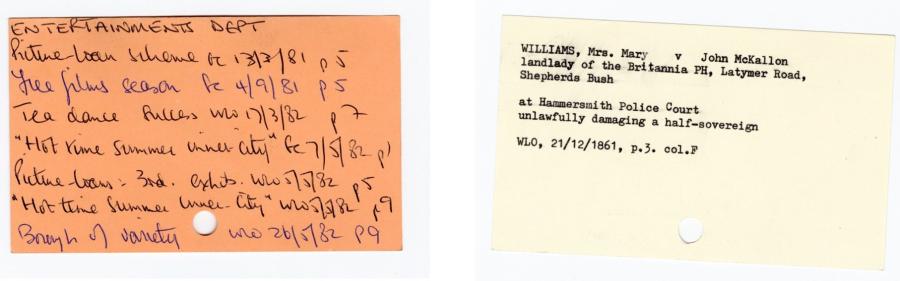 ENTERTAINMENTS DEPT
Picture-loan scheme Gc 13/3/81 p5
Free films season Gc 4/9/81 p5
Tea dance success WLO 17/3/82 p7
"Hot time summer inner city" Gc 7/5/82 p1
Picture-loans: 3rd. exhib. WLO 5/5/82 p5
"Hot time Summer Inner-City" WLO 5/5/82 p9
Borough of variety WLO 26/5/82 p9
WILLIAMS, Mrs. Mary v John McKallon
landlady of the Britannia PH, Latymer Road,
Shepherds Bush
at Hammersmith Police Court
unlawfully damaging a half-sovereign
WLO, 21/12/1861, p.3. col.F